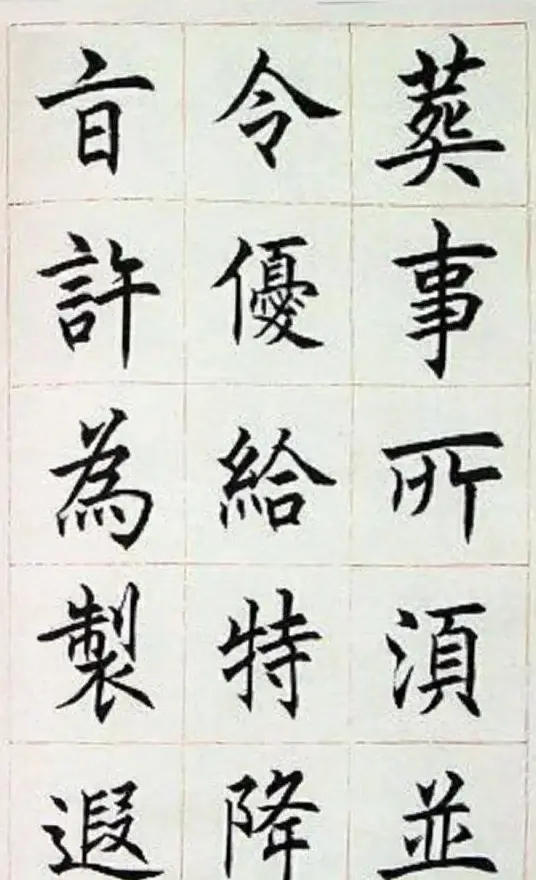 葬事所湏並
令優給特降
㫖許為製遐